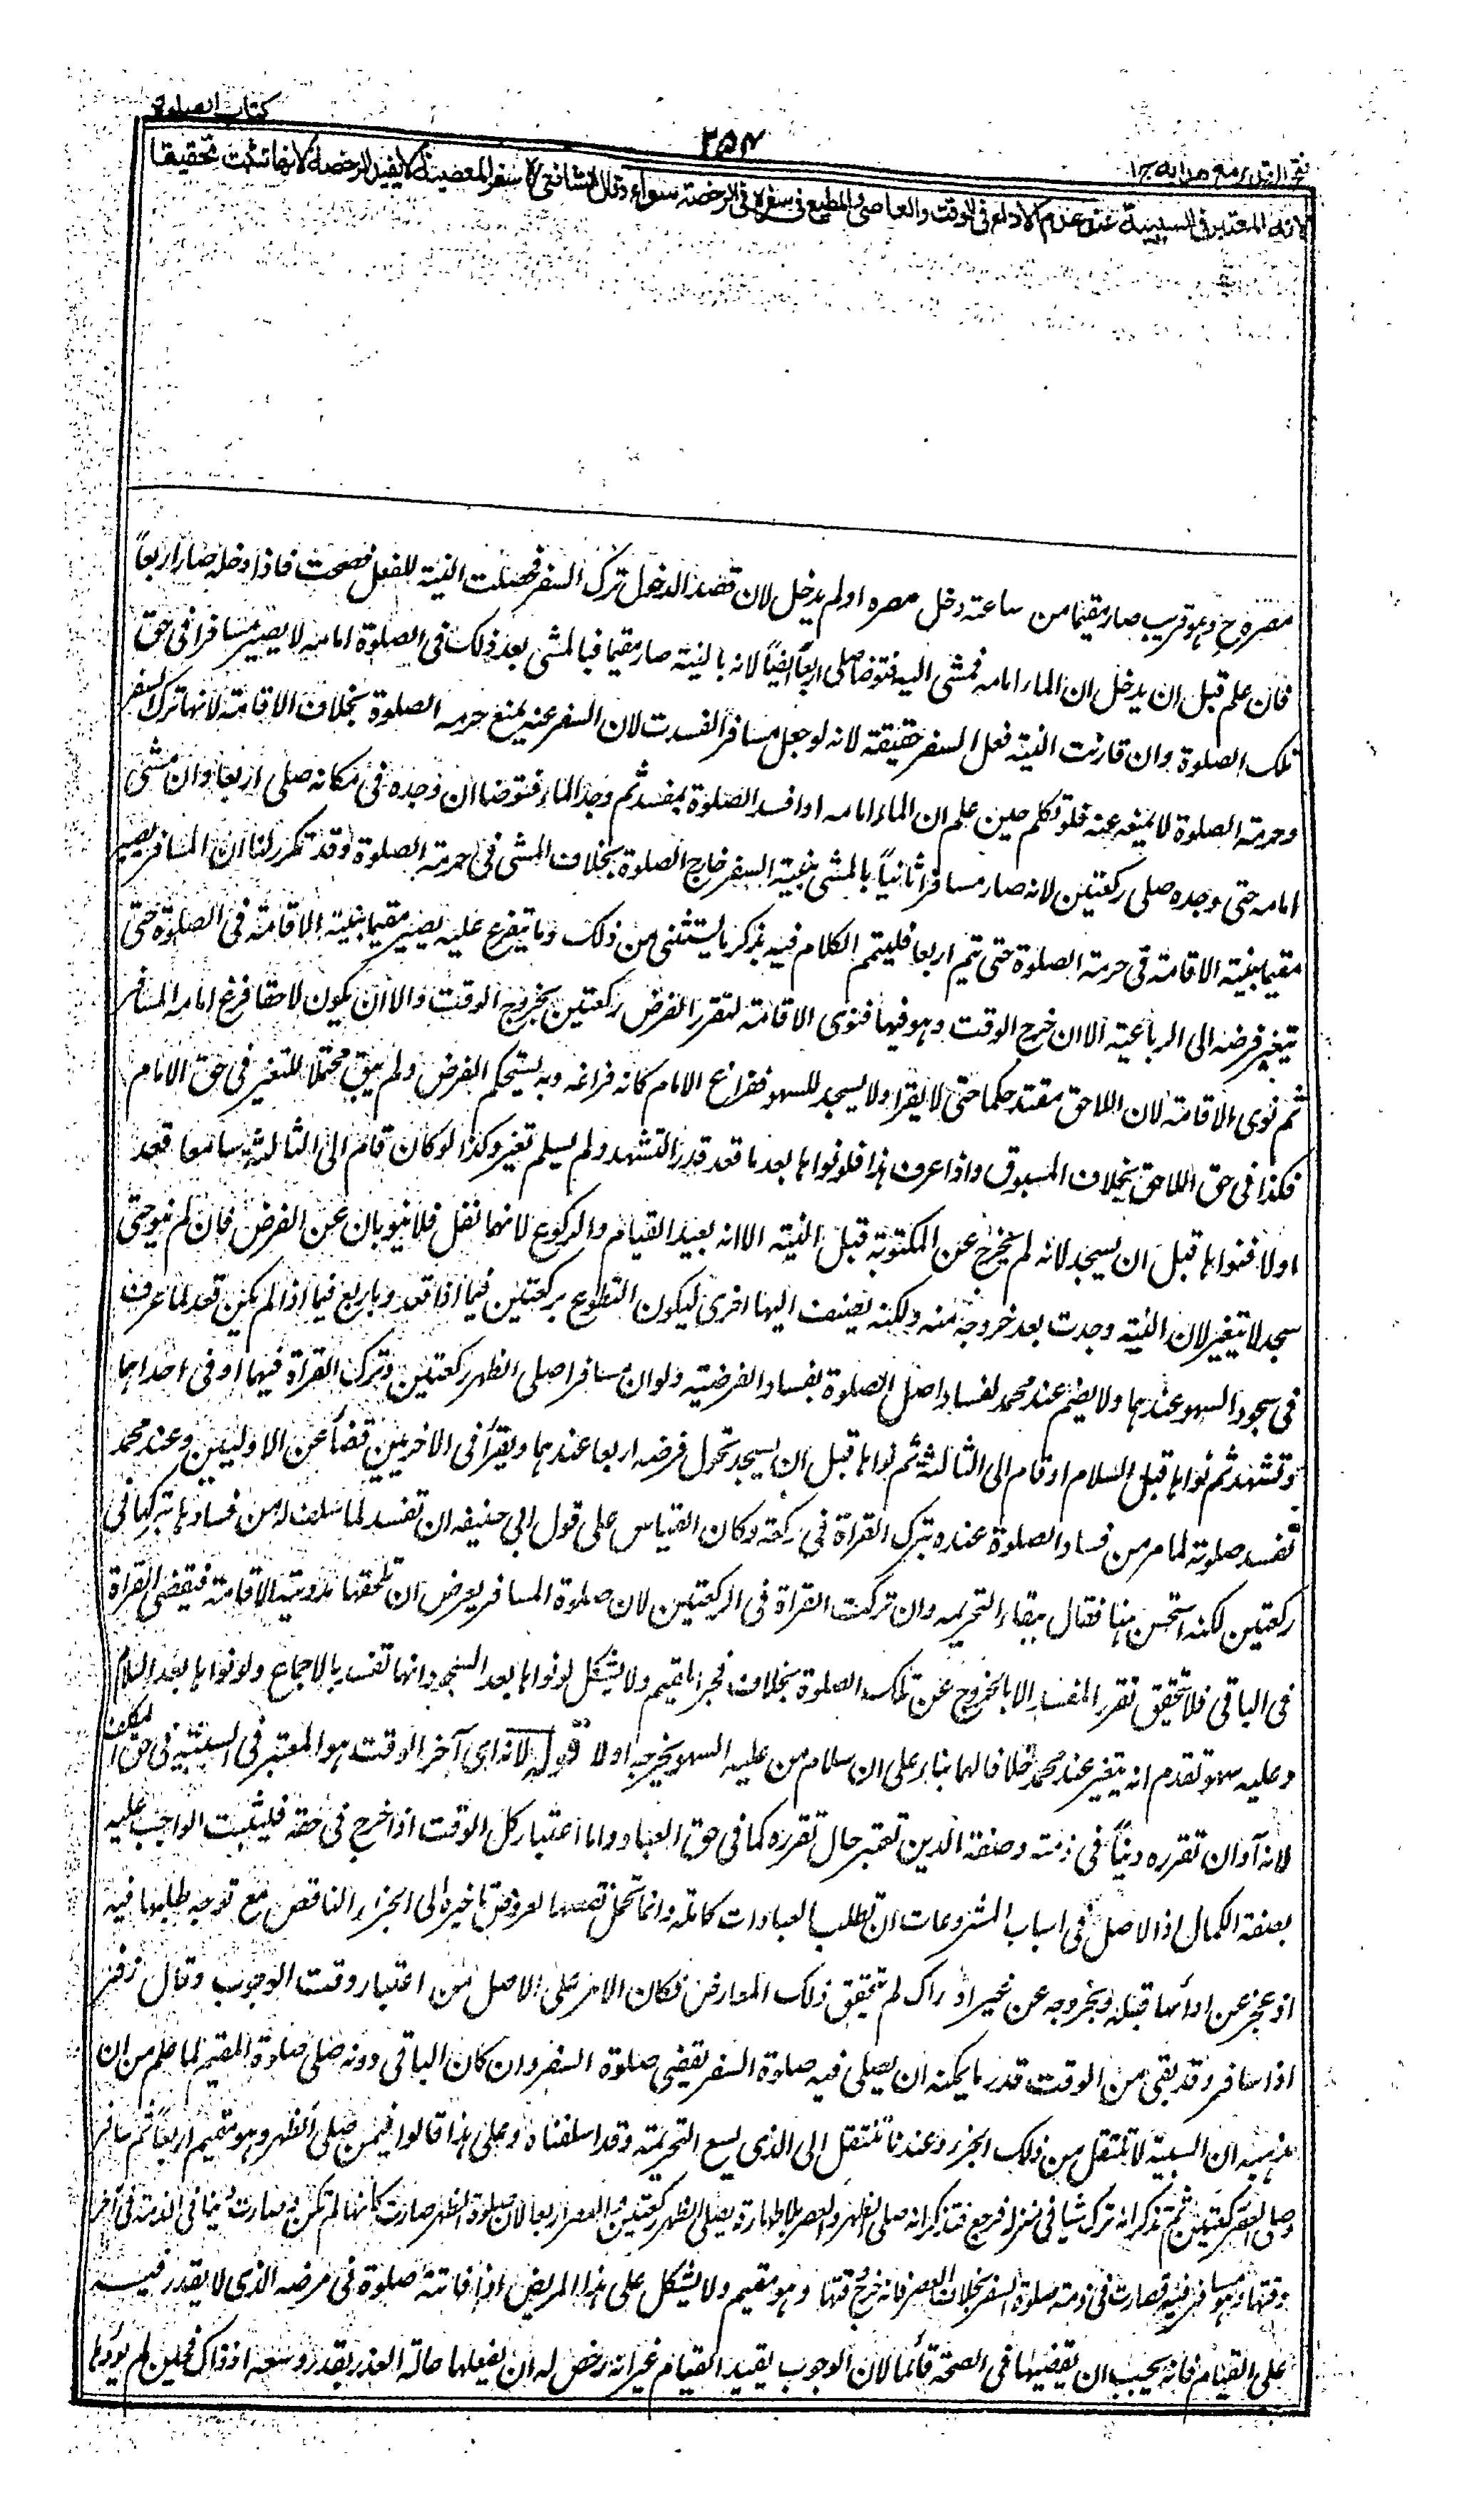 كتاب الصلوة
٢٥٧
فتح القدير مع هدايه ج١
لانه المعتبر فى السببية عند عدم الاداء فى الوقت والعاصى والمطيع فى سفره فى الرخصة سواء وقال الشافعى لا سفر المعصية لا يفيد الرخصة لانها تثبت تخفيفا
مصره وهو قريب صار مقيما من ساعته دخل مصره او لم يدخل لان قصد الدخول ترك السفر فحصلت النية للفعل فصحت فاذا دخله صلى اربعاً
فان علم قبل ان يدخل ان الماء امامه فمشى اليه فتوضا صلى اربعاً ايضاً لانه بالنية صار مقيما فبالمشى بعد ذلك فى الصلوة امامه لا يصير مسافرا فى حق
تلك الصلوة وان قارنت النية فعل السفر حقيقة لانه لو جعل مسافراً لفسدت لان السفر عنه يمنع حرمه الصلوة بخلاف الاقامة لانها ترك السفر
وحرمة الصلوة لا تمنعه عنه فلو تكلم حين علم ان الماء امامه او افسد الصلوة بمفسد ثم وجد الماء فتوضا ان وجده فى مكانه صلى اربعا وان مشى
امامه حتى وجده صلى ركعتين لانه صار مسافرا ثانياً بالمشى بنية السفر خارج الصلوة بخلاف المشى فى حرمة الصلوة وقد تكرر لنا ان المسافر يصير
مقيما بنية الاقامة فى حرمة الصلوة حتى تتم اربعا فليتمم الكلام فيه بذكر ما يستثنى من ذلك وما يتفرع عليه يصير مقيما بنية الاقامة فى الصلوة حتى
يتغير فرضه الى الرباعية الا ان خرج الوقت وهو فيها فنوى الاقامة لتقرر الفرض ركعتين بخروج الوقت والا ان يكون لاحقا فرغ امامه المسافر
ثم نوى الاقامة لان اللاحق مقتد حكما حتى لا يقرا ولا يسجد للسهو ففراغ الامام كانه فراغه وبه يستحكم الفرض ولم يبق محتملا للتغير فى حق الامام
فكذا فى حق اللاحق بخلاف المسبوق واذا عرف هذا فلو نواها بعد ما قعد قدر التشهد ولم يسلم تغير وكذا لو كان قام الى الثالثة ساهيا قعد
اولا فنواها قبل ان يسجد لانه لم يخرج عن المكتوبة قبل النية الا انه يعيد القيام والركوع لانهما نفل فلا ينوبان عن الفرض فان لم ينو حتى
سجد لا يتغير لان النية وجدت بعد خروجه منه ولكنه يضيف اليها اخرى ليكون التطوع بركعتين فيما اذا قعد وباربع فيما اذا لم يكن قعد لما عرف
فى سجود السهو عندهما ولا يضم عند محمد لفساد اصل الصلوة بفساد الفرضية ولو ان مسافرا صلى الظهر ركعتين وترك القراة فيهما او فى احداهما
وتشهد ثم نواها قبل السلام او قام الى الثالثة ثم نواها قبل ان يسجد تحول فرضه اربعا عندهما ويقرأ فى الاخريين قضاً عن الاوليين وعند محمد
تفسد صلوته لما مر من فساد الصلوة عنده بترك القراة فى ركعة وكان القياس على قول ابى حنيفه ان تفسد لما سلف له من فسادها بتركها فى
ركعتين لكنه استحسن هنا فقال ببقاء التحريمه وان تركت القراة فى الركعتين لان صلوة المسافر يعرض ان تلحقها مدة نية الاقامة فيقضى القراة
فى الباقى فلا يتحقق تقرر المفسد الا بالخروج عن تلك الصلوة بخلاف فجر المقيم ولا يشكل لو نواها بعد السجود انها تفسد بالاجماع ولو نواها بعد السلام
وعليه سهو تقدم انه يتغير عند محمد خلافا لهما بناء على ان سلام من عليه السهو يخرجه او لا قوله لانه اى آخر الوقت هو المعتبر فى السببية فى حق المكلف
لانه آوان تقرره ديناً فى ذمته وصفة الدين تعتبر حال تقرره كما فى حق العباد واما اعتبار كل الوقت اذا خرج فى حقه فليثبت الواجب عليه
بصفة الكمال اذ الاصل فى اسباب المشروعات ان تطلب العبادات كاملة وانما تحمل نقصها لعروض تاخيره الى الجزء الناقص مع توجه طلبها فيه
اذ عجز عن ادائها قبله وبخروجه عن غير ادراك لم يتحقق ذلك المعارض فكان الامر على الاصل من اعتبار وقت الوجوب وقال زفر
اذا سافر وقد بقى من الوقت قدر ما يمكنه ان يصلى فيه صلوة السفر يقضى صلوة السفر وان كان الباقى دونه صلى صلوة المقيم لما علم من ان
مذهبه ان السببية لا تنتقل من ذلك الجزء وعندنا تنتقل الى الذى يسع التحريمة وقد اسلفناه وعلى هذا قالوا فيمن صلى الظهر وهو مقيم اربعاً ثم سافر
وصلى العصر ركعتين ثم تذكر انه ترك شيا فى منزله فرجع فتذكر انه صلى الظهر والعصر بلا طهارة يصلى الظهر ركعتين والعصر اربعا لان صلوة الظهر صارت كانها لم تكن وصارت دينا فى الذمة فى آخر
وقتها وهو مسافر فيه فصارت فى ذمته صلوة السفر بخلاف العصر فانه خرج وقتها وهو مقيم ولا يشكل على هذا المريض اذا فاتته صلوة فى مرضه الذى لا يقدر فيه
على القيام فانه يجب ان يقضيها فى الصحة قائما لان الوجوب بقيد القيام غير انه رخص له ان يفعلها حالة العذر بقدر وسعه اذ ذاك فحين لم يؤدها